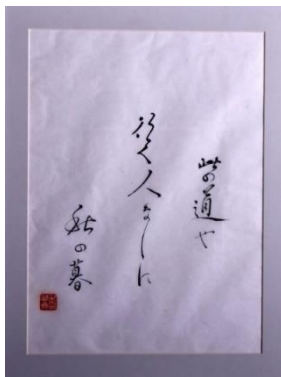 此の道や
行く人なしに
秋の暮